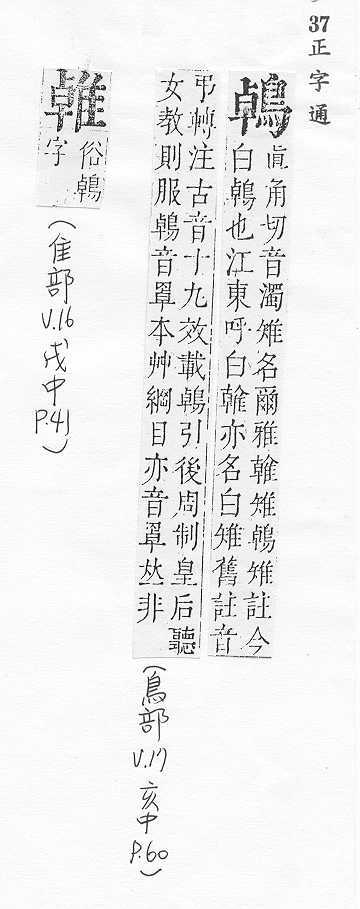 37正字通
鵫
眞角切音濁雉名爾雅雗雉鵫雉註今
白鵫也江東呼白雗亦名白雉舊註音
弔轉注古音十九效載鵫引後周制皇后聽
女教則服鵫音罩本艸綱目亦音罩丛非
(鳥部V.17亥中P.60)
俗鵫
字
(隹部V.16戌中P.41)